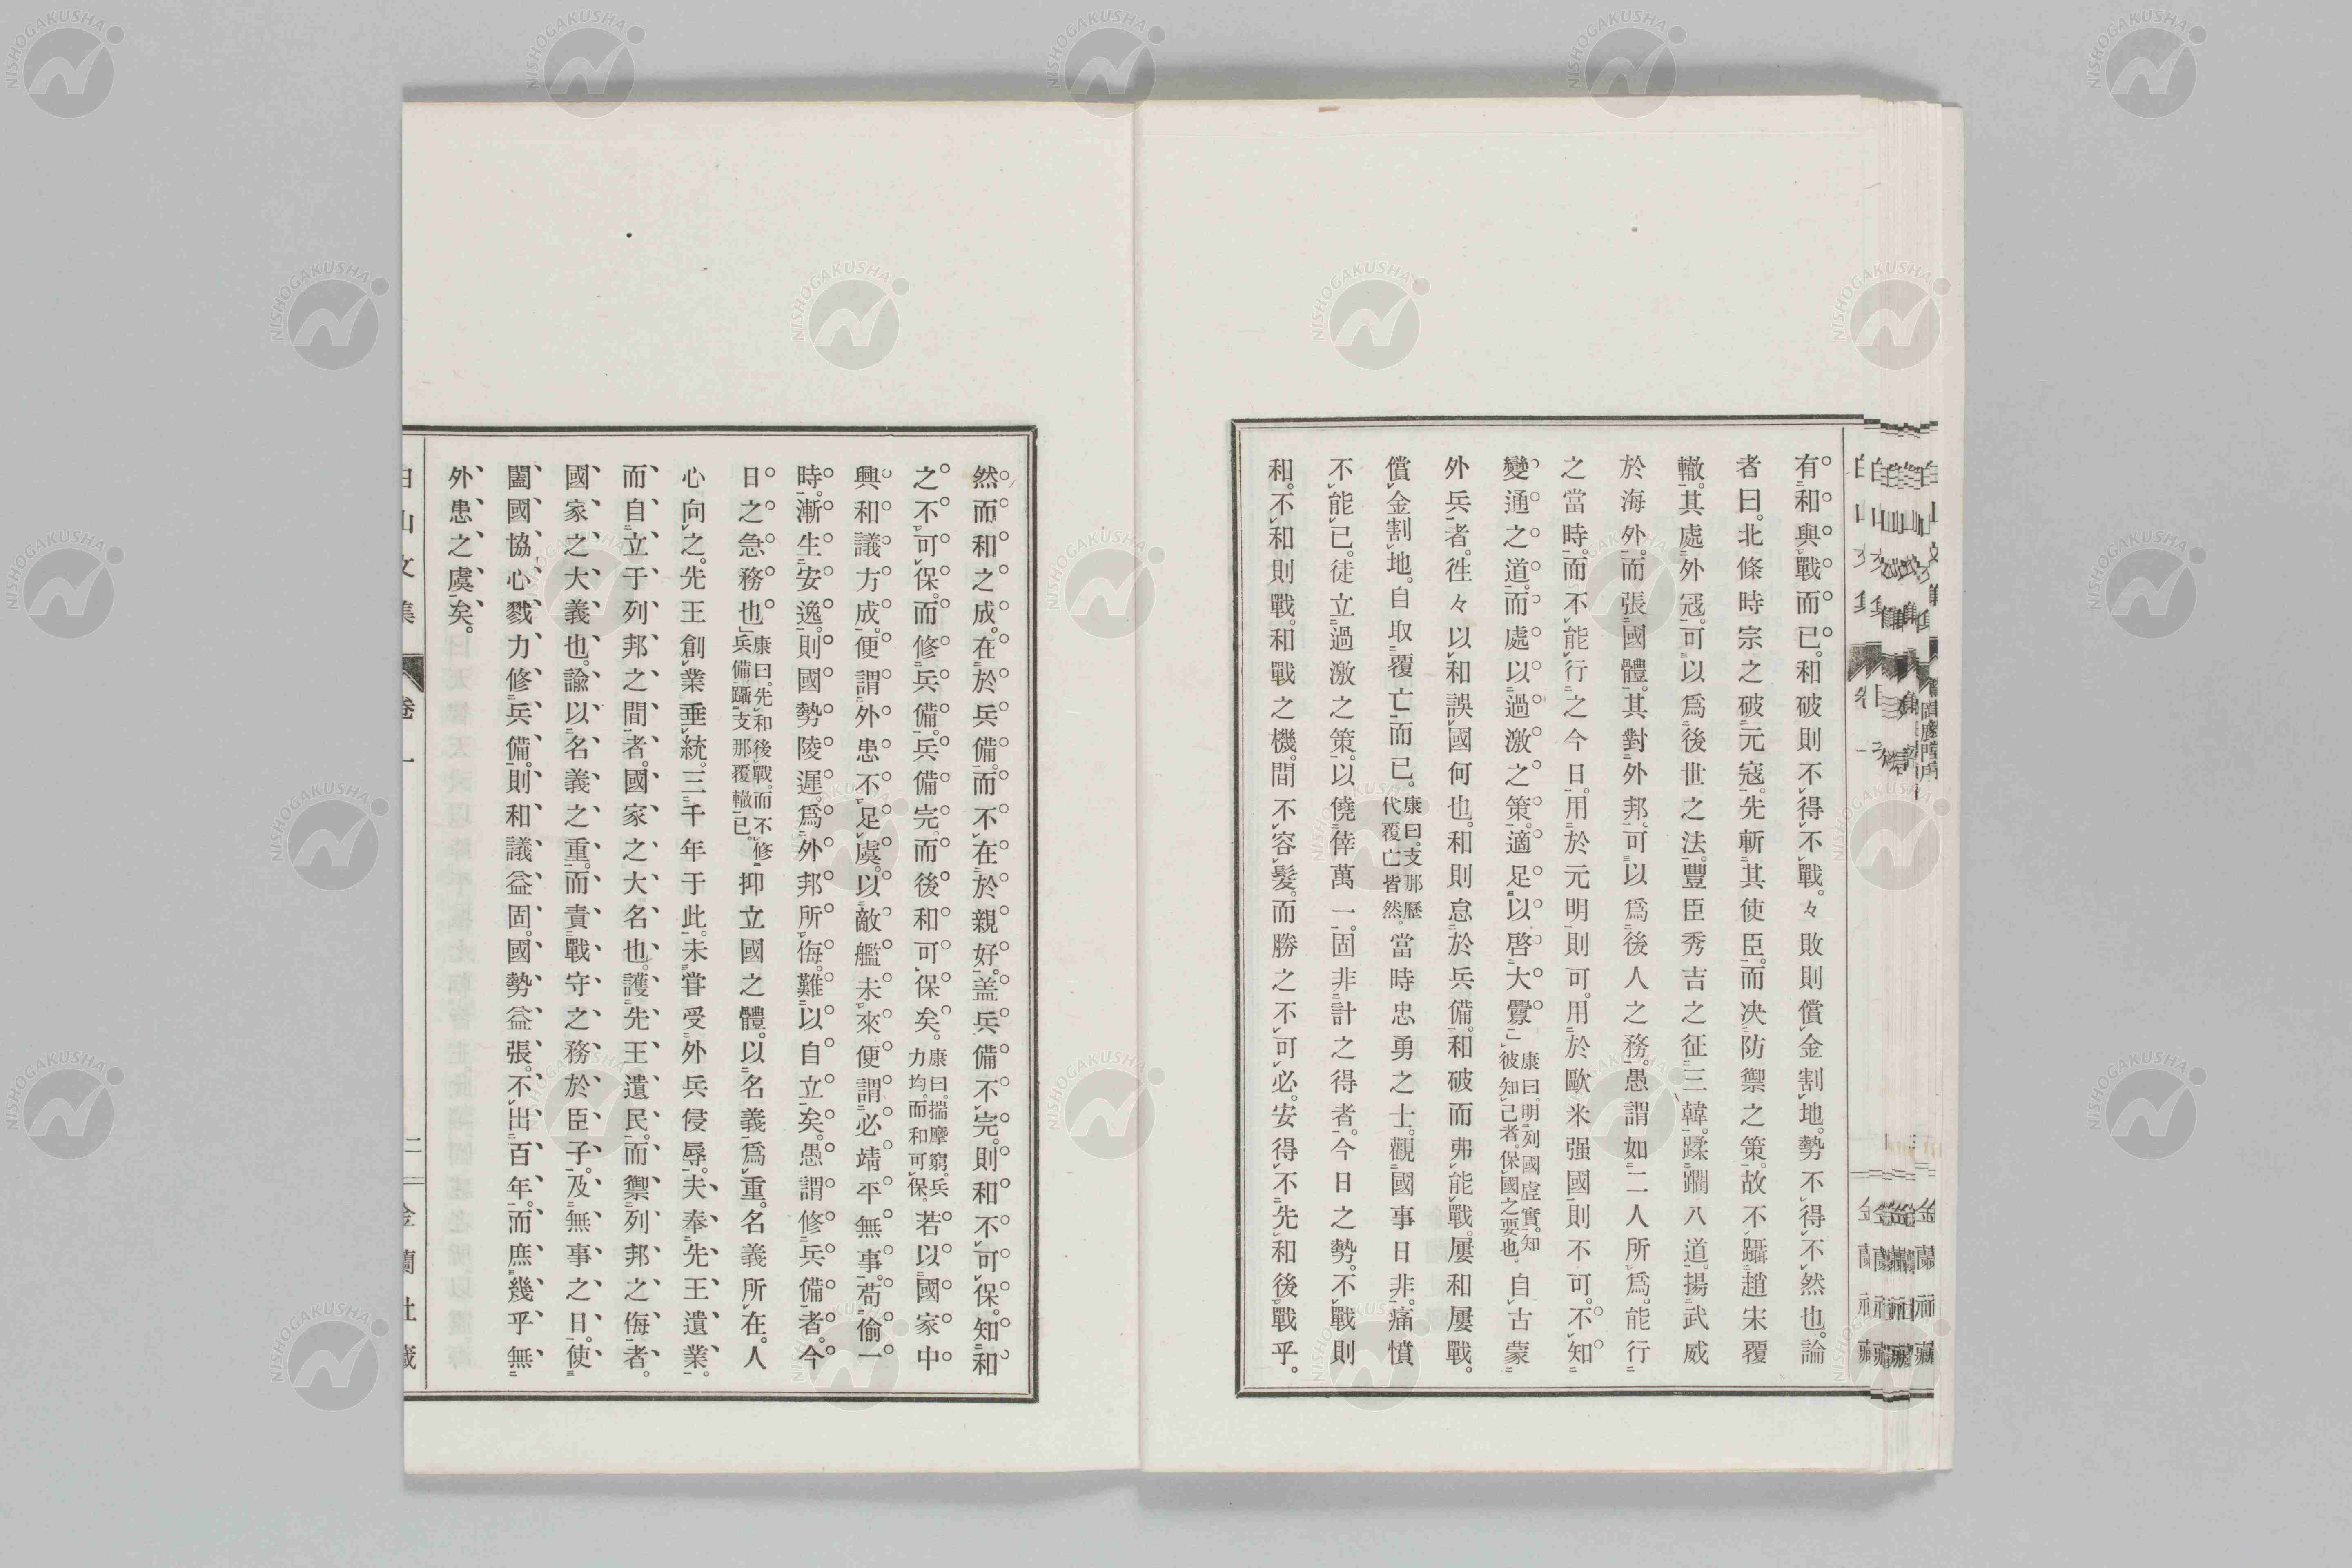 有和與戰而已。和破則不得不戰。々敗則償金割地。勢不得不然也。論
者曰。北條時宗之破元寇。先斬其使臣。而决防禦之策。故不躡趙宋覆
轍。其處外寇。可以爲後世之法。豐臣秀吉之征三韓。蹂躙八道。揚武威
於海外。而張國體。其對外邦。可以爲後人之務。愚謂如二人所爲。能行
之當時。而不能行之今日。用於元明則可。用於歐米强國則不可。不知
變通之道。而處以過激之策。適足以啓大釁。」康曰。明列國虛實。知彼知己者。保國之要也。自古蒙
外兵者。徃々以和誤國何也。和則怠於兵備。和破而弗能戰。屢和屢戰。
償金割地。自取覆亡而已。康曰。支那歷代覆亡皆然。當時忠勇之士。觀國事日非。痛憤
不能已。徒立過激之策。以僥倖萬一。固非計之得者。今日之勢。不戰則
和。不和則戰。和戰之機。間不容髮。而勝之不可必。安得不先和後戰乎。
然而和之成。在於兵備。而不在於親好。盖兵備不完。則和不可保。知和
之不可保。而修兵備。兵備完。而後和可保矣。康曰。揣摩窮。兵力均。而和可保。若以國家中
興和議方成。便謂外患不足虞。以敵艦未來便謂必靖平無事。苟偷一
時。漸生安逸。則國勢陵遲。爲外邦所侮。難以自立矣。愚謂修兵備者。今
日之急務也」康曰。先和後戰。而不修兵備。躡支那覆轍已。抑立國之體。以名義爲重。名義所在。人
心向之。先王創業垂統。三千年于此。未甞受外兵侵辱。夫奉先王遺業。
而自立于列邦之間者。國家之大名也。護先王遺民。而禦列邦之侮者。
國家之大義也。諭以名義之重。而責戰守之務於臣子。及無事之日。使
闔國協心戮力修兵備。則和議益固。國勢益張。不出百年。而庶幾乎無
外患之虞矣。
白山文集
卷一
二
金蘭社藏
NISHOGAKUSHA